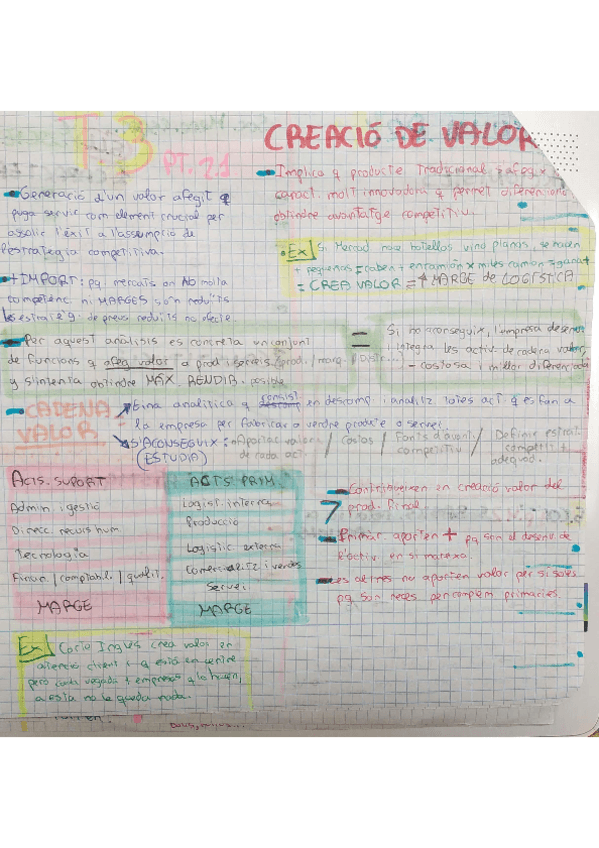 T.3 PT. 2.1
CREACIÓ DE VALOR
Generació d'un valor afegit q
pugui servir com element crucial per
assolir l'èxit a l'assumpció de
l'estratègia competitiva.
Implica q producte tradicional s'afegix
caract. molt innovadora q permet diferenciar
obtindre avantatge competitiu.
Ex Si Mercad. nous botellas vino planas, se hacen
+ pequeñas = caben + en camión x
= CREA VALOR = ↑ MARGE de LOGÍSTICA
+ IMPORT: pq mercats on NO molta
competènc. ni MARGES són reduïts
l'estratèg. de preus reduïts no
Per aquest anàlisis es concreta un conjunt
de funcions q afeg. valor a prod. i serveis (prod. / marq. / Distr...)
y s'intenta obtindre MÀX. RENDIB. possible
= Si ho aconseguix, l'empresa
i integra les activ. de cadena valor,
- costosa i millor diferenciada
CADENA VALOR
Eina analítica q consist en descomp. i analitz. totes act. q es fan a
la empresa per fabricar o vendre producte o servei.
S'ACONSEGUIX: (ESTUDIA)
Aportac. valora de cada act. / Costos / Fonts d'avant. competitiu / Definir estrat. competit. + adequad.
ACTS. SUPORT
Admin i gestió
Direcc. recurs hum.
Tecnologia
Finan. / comptabil. / qualit.
MARGE
ACTS PRIM.
Logist. interna
Producció
Logistic externa
Comercialitz i vendes
Servei
MARGE
Contribueixen en creació valor del
prod. final.
Primar. aporten + pq són el
l'activ. en si mateixa.
les altres no aporten valor per si soles
pq són neces. per complem primàries.
Ex Corte Inglés crea valor en
atenció client + q está en
pero cada vegada + empreses q lo hacen,
a esta no le queda nada.